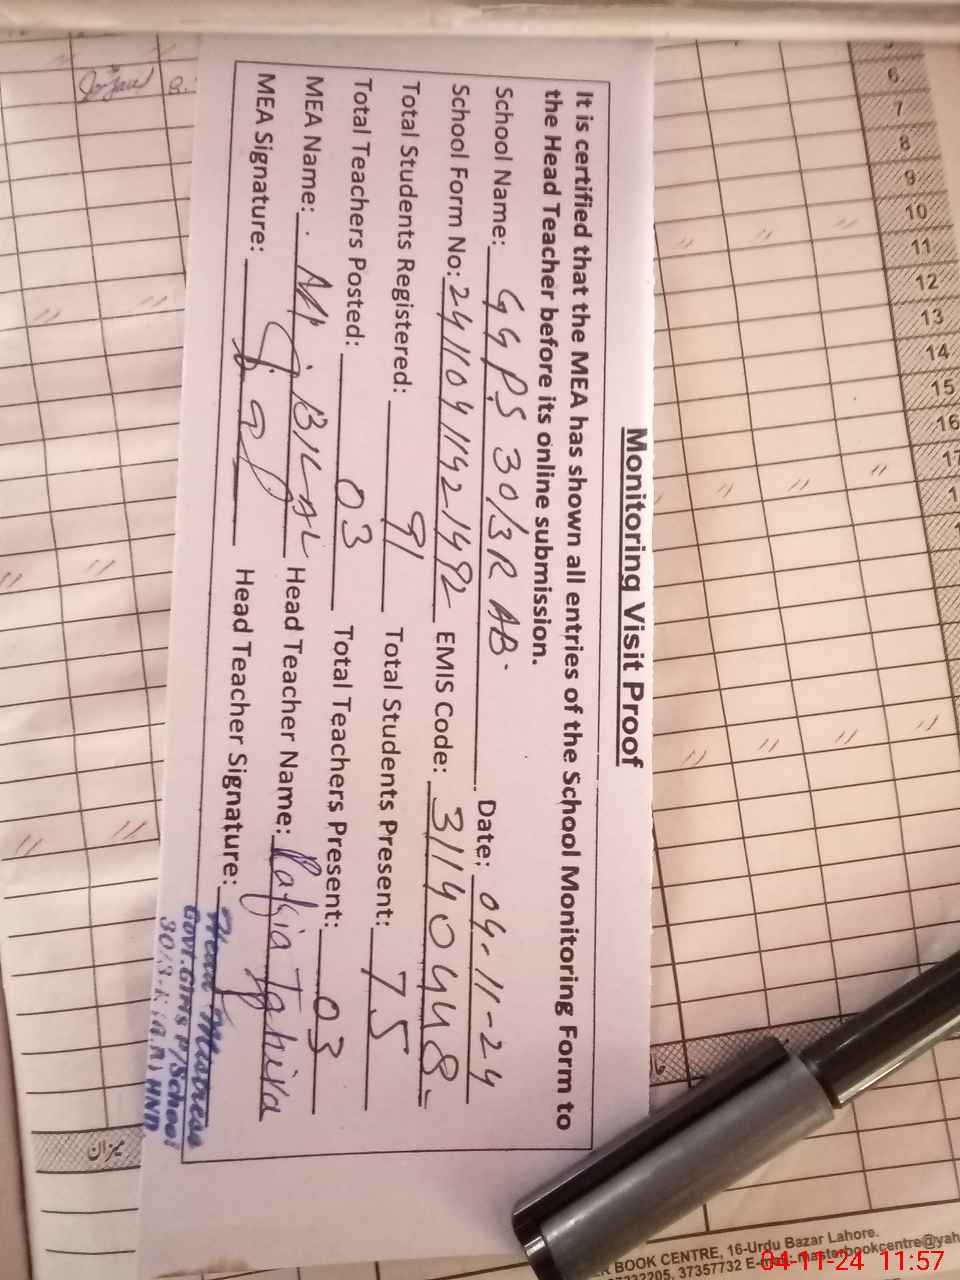 Monitoring Visit Proof
It is certified that the MEA has shown all entries of the School Monitoring Form to
the Head Teacher before its online submission.
School Name: GGPS 30/3R AB. Date: 04-11-24
School Form No: 24110411921492 EMIS Code: 31140448-
Total Students Registered: 91 Total Students Present: 75
Total Teachers Posted: 03 Total Teachers Present: 03
MEA Name: M Bilal Head Teacher Name: Rafia Tahira
MEA Signature: Head Teacher Signature:
Head Mistress
Govt. Girls P/School
30/3.R (A.B) HND
6
7
8
9
10
11
12
13
14
15
16
17
1
میزان
BOOK CENTRE, 16-Urdu Bazar Lahore.
37357732 E-mail: masterbookcentre@yah
04-11-24 11:57